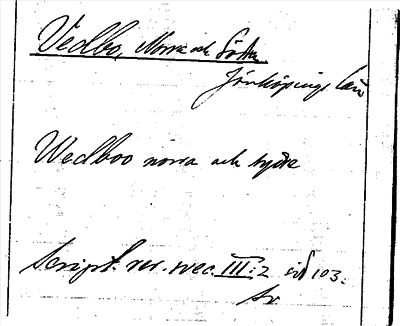 Vedbo, Norra och Södra
Jönköpings län
Wedboo norra och sydre
Script. rer. svec. III:2 sid 103.